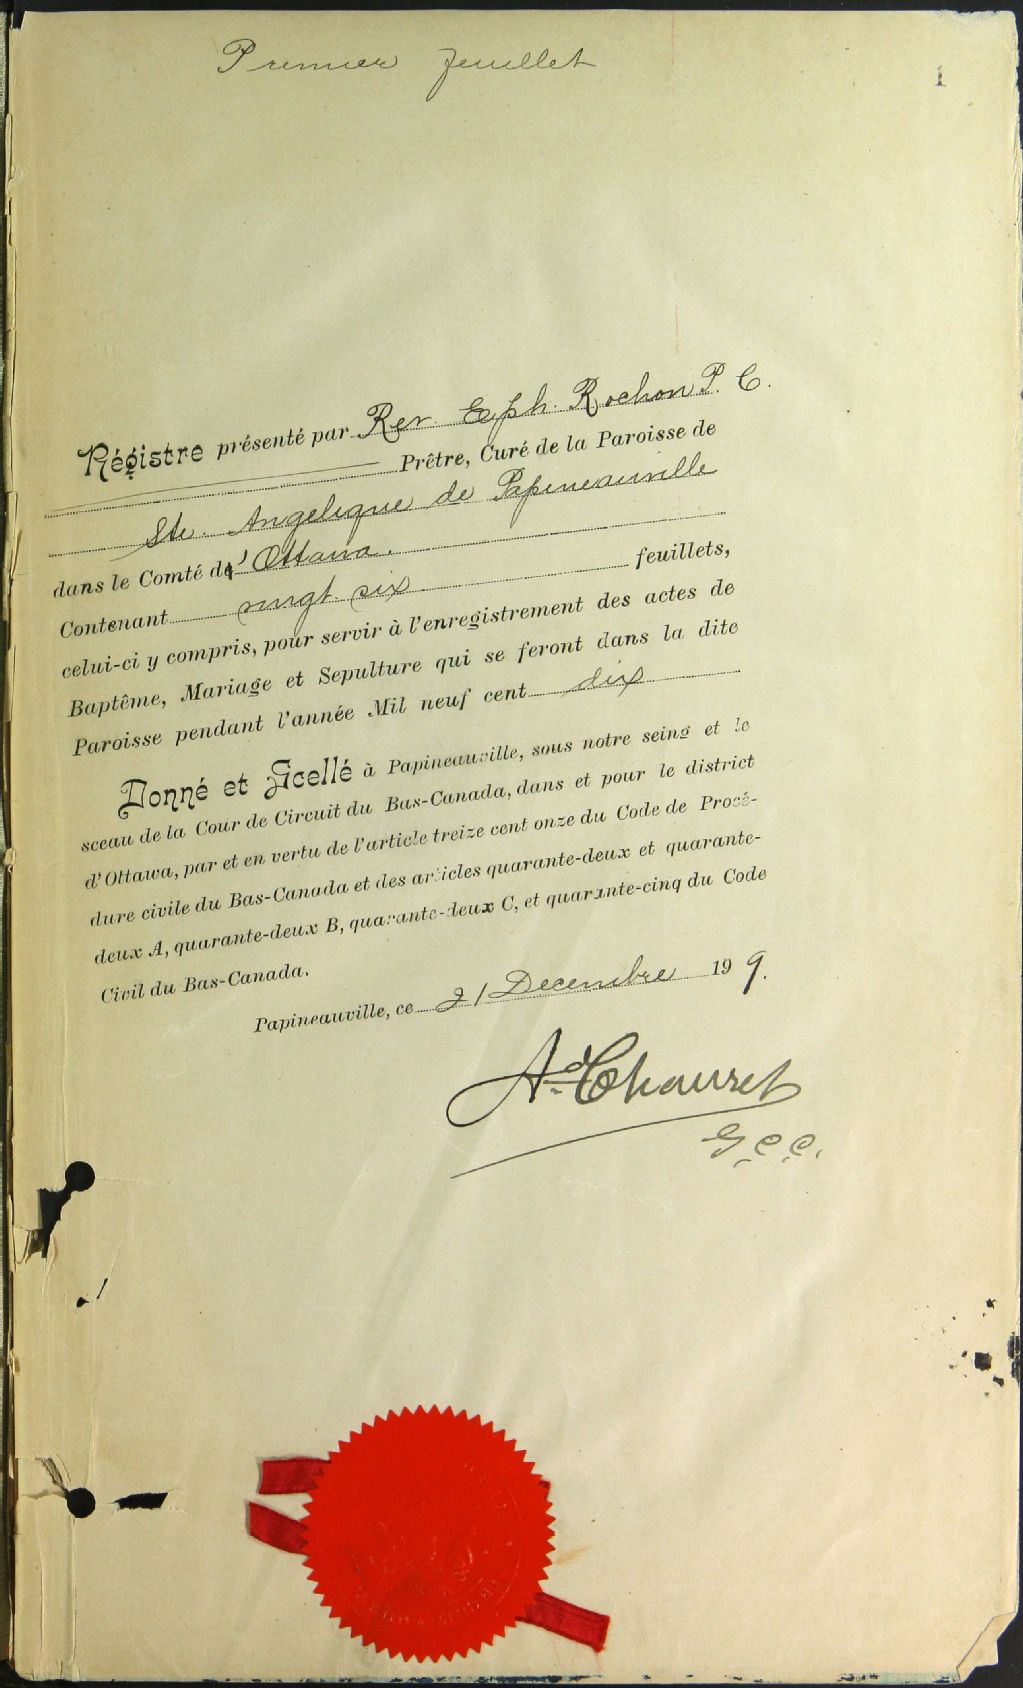 Premier feuillet
1
Régistre présenté par Rev. Eph. Rochon P. C.
Prêtre, Curé de la Paroisse de
Ste. Angelique de Papineauville
dans le Comté d'Ottawa.
Contenant vingt six feuillets,
celui-ci y compris, pour servir à l'enregistrement des actes de
Baptême, Mariage et Sepulture qui se feront dans la dite
Paroisse pendant l'année Mil neuf cent dix
Donné et Scellé à Papineauville, sous notre seing et le
sceau de la Cour de Circuit du Bas-Canada, dans et pour le district
d'Ottawa, par et en vertu de l'article treize cent onze du Code de Procé-
dure civile du Bas-Canada et des articles quarante-deux et quarante-
deux A, quarante-deux B, quarante-deux C, et quarante-cinq du Code
Civil du Bas-Canada.
Papineauville, ce 21 Decembre 19 9.
Ad. Chauret
G. C. C.